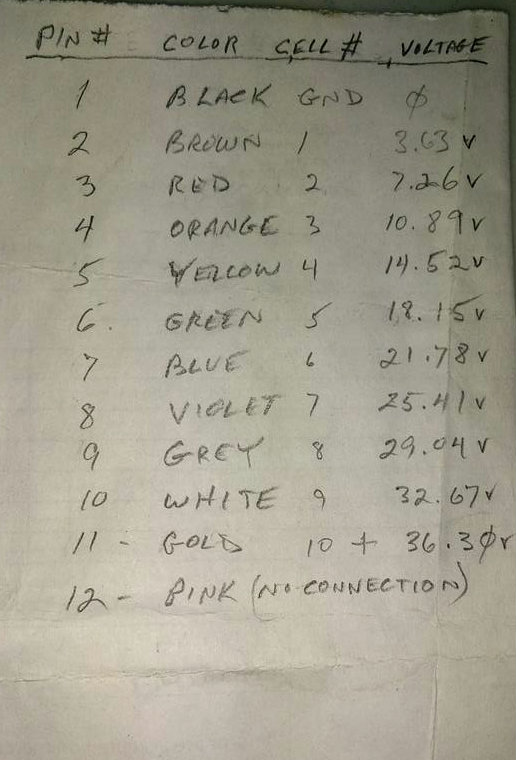 PIN # COLOR CELL # VOLTAGE
1 BLACK GND Ø
2 BROWN 1 3.63 V
3 RED 2 7.26 V
4 ORANGE 3 10.89 V
5 YELLOW 4 14.52 V
6. GREEN 5 18.15 V
7 BLUE 6 21.78 V
8 VIOLET 7 25.41 V
9 GREY 8 29.04 V
10 WHITE 9 32.67 V
11 - GOLD 10 + 36.3Ø V
12 - PINK (NO CONNECTION)